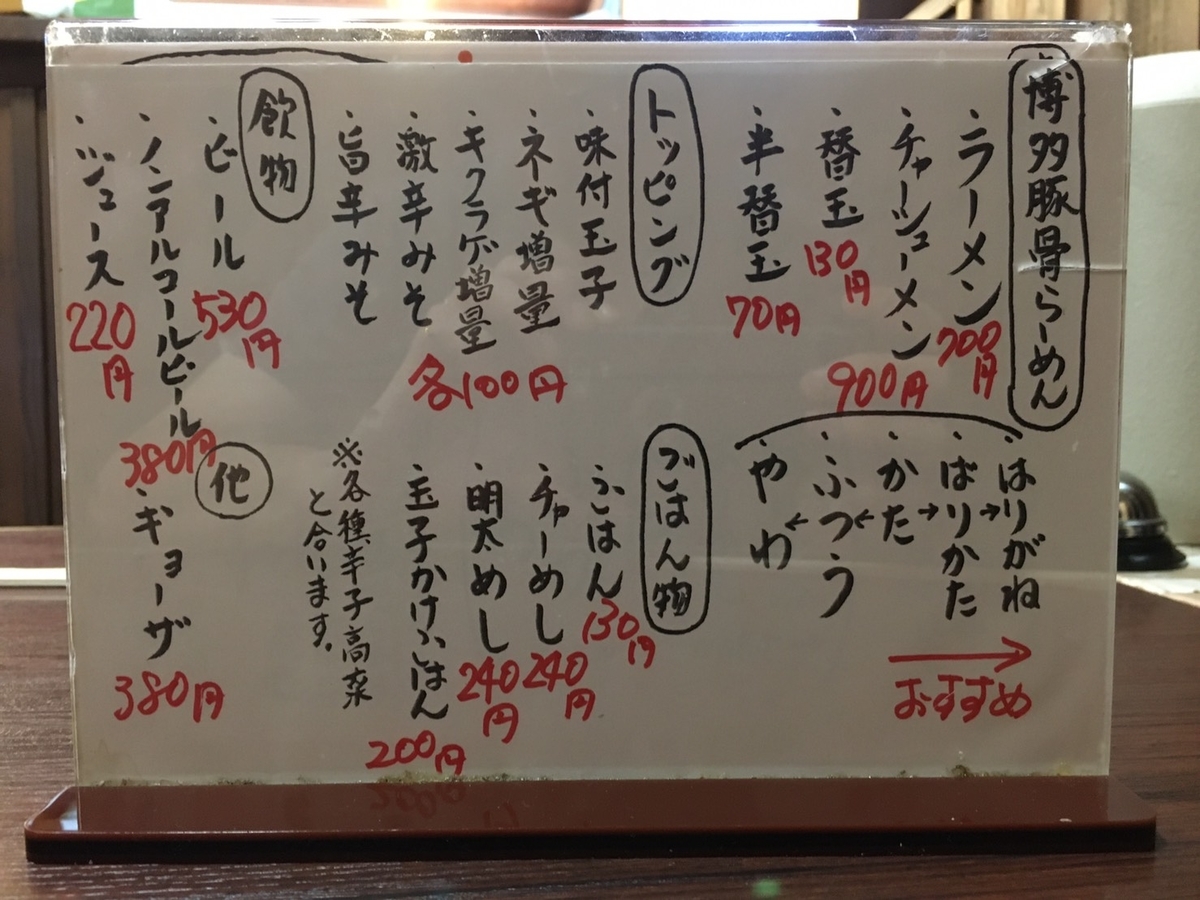 博多豚骨らーめん
・ラーメン 700円
・チャーシューメン 900円
・替玉 130円
・半替玉 70円
・はりがね
→
・ばりかた
→
・かた
・ふつう
←
・やわ
←
→
おすすめ
トッピング
・味付玉子
・ネギ増量
・キクラゲ増量
・激辛みそ
・旨辛みそ
各100円
ごはん物
・ごはん 130円
・チャーめし 240円
・明太めし 240円
・玉子かけごはん 200円
※各種辛子高菜
と合います。
飲物
・ビール 530円
・ノンアルコールビール 380円
・ジュース 220円
他
・ギョーザ 380円